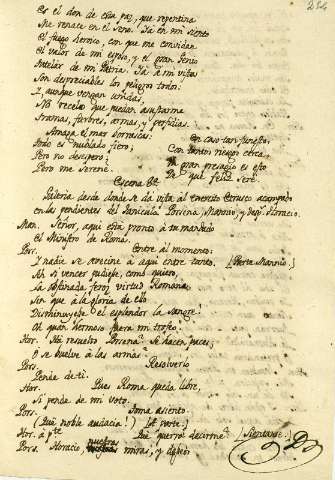 214
Es el don de esta paz, que repentina
Me renace en el Seno. Ya en mi siento
El fuego heroico, con que me convidan
El valor de mi esposo, y el gran Genio
Tutelar de mi Patria. Ya a mi vista
Son despreciables los peligros todos.
Y aunque vengan unidas,
No recelo que puedan asustarme
Tramas, furores, armas, y perfidias.
Amaga el mar borrascas:
Todo es nublado fiero;
Pero no desespero;
Pero me Serené.
En caso tan funesto,
Con tanto riesgo cerca,
gran presagio es esto
De que feliz seré
Escena 6ª
Galeria desde donde se da vista al exercito Etrusco acampado
en las pendientes del Janiculo. Porsena, Mannio, y desp. Horacio.
Man. Señor, aqui está pronto a tu mandato
El Ministro de Roma.
Por. Entre al momento:
Y nadie se avecine a aqui entre tanto. (Parte Mannio.)
Ah si vencer pudiese, como quiero,
La obstinada feroz virtud Romana,
Sin que a la gloria de ello
Disminuyese el esplendor la sangre!
Oh quan hermoso fuera mi trofeo.
Hor. Ha resuelto Porsena? Se hacen paces,
O se buelve a las armas?
Pors. Resolverlo
Pende de ti.
Hor. Pues Roma queda libre,
Si pende de mi voto.
Pors. Toma asiento.
(Qué noble audacia!) (A parte.)
Hor. a pte Qué querrá decirme? (Sientanse.)
Pors. Horacio, nuestras miras, y deseos